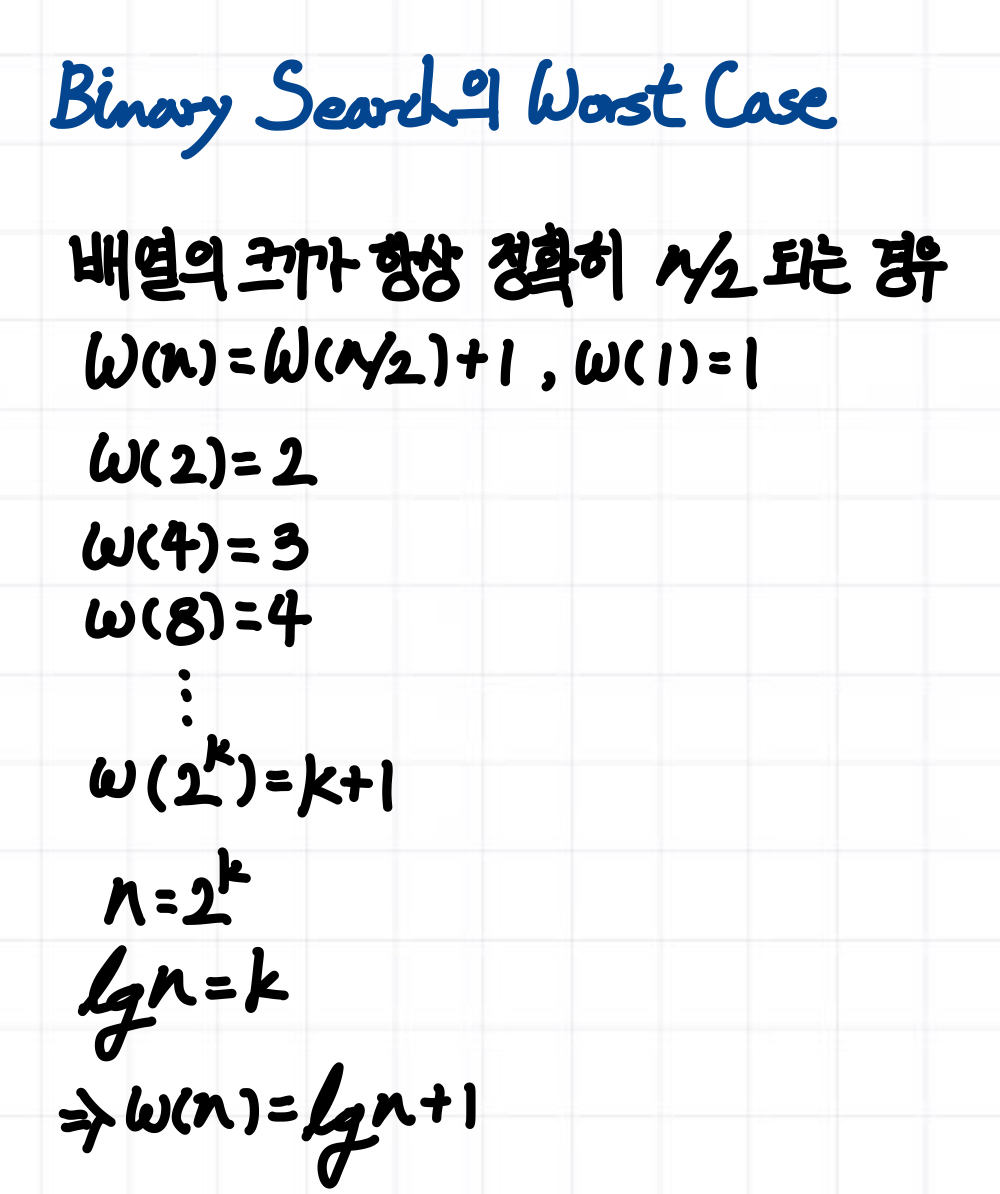 Binary Search의 Worst Case
배열의 크기가 항상 정확히 n/2 되는 경우
W(n)=W(n/2)+1, w(1)=1
w(2)=2
w(4)=3
w(8)=4
⋮
w(2^k)=k+1
n=2^k
lg n=k
⇒ w(n)=lg n+1